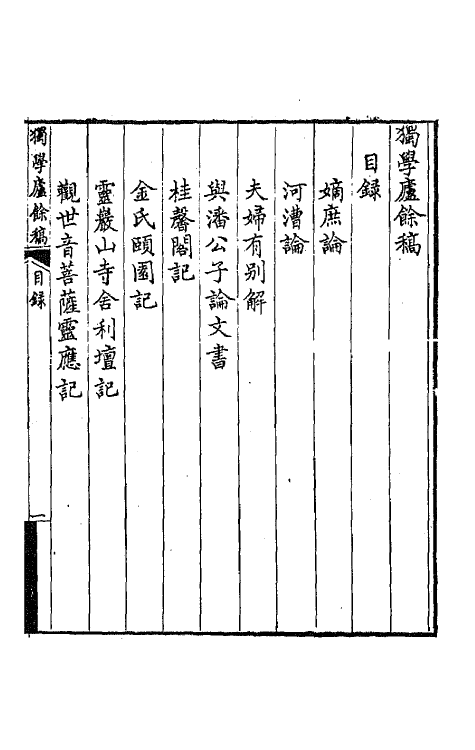 獨學廬餘稿
目録
嫡庶論
河漕論
夫婦有别解
與潘公子論文書
桂馨閣記
金氏頤園記
靈巖山寺舍利壇記
觀世音菩薩靈應記
獨學廬餘稿 目録 一